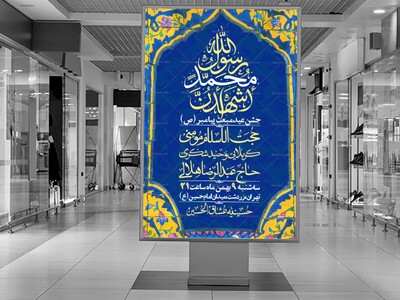 اشهد ان
محمد
رسول الله
جشن عید مبعث پیامبر (ص)
حجت الاسلام مومنی
کربلایی وحید شکری
حاج عبدالرضا هلالی
سه شنبه ۹ بهمن ماه ساعت ۲۱
تهران، زردشت، میدان امام حسین (ع)
حسینیه عشاق الحسین